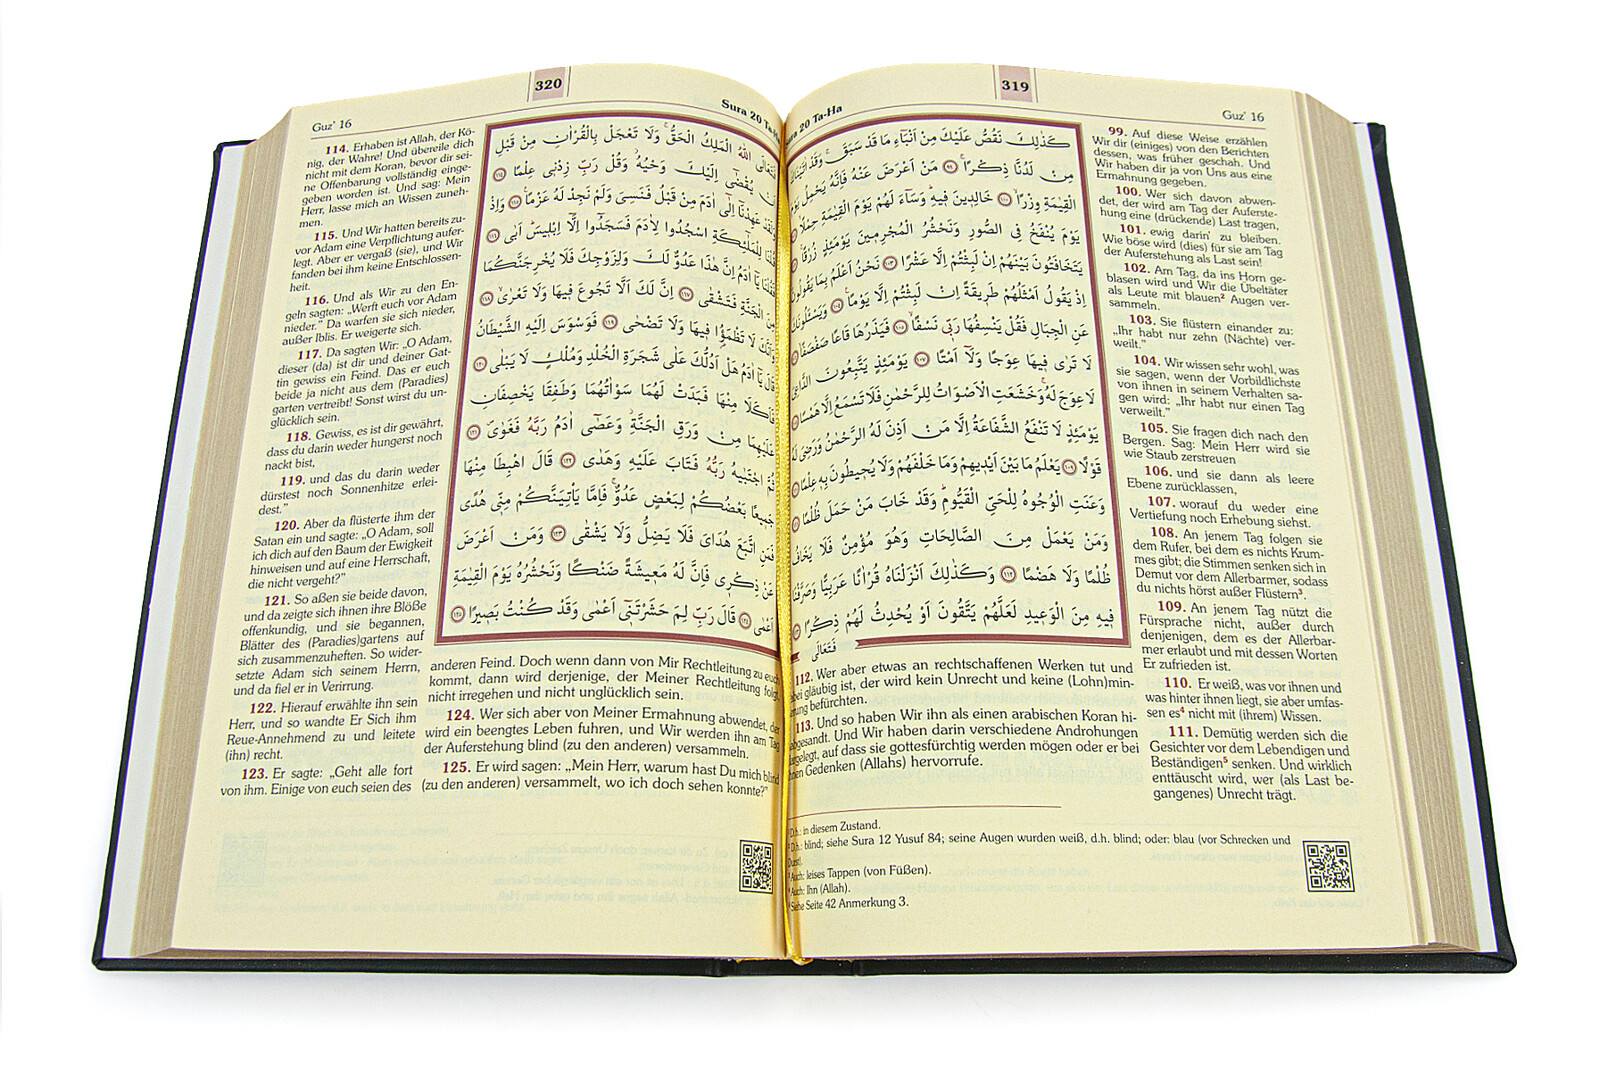 319
Guz' 16
20 Ta-Ha
كَذٰلِكَ نَقُصُّ عَلَيْكَ مِنْ اَنْبَٓاءِ مَا قَدْ سَبَقَۚ وَقَدْ اٰتَيْنَاكَ
مِنْ لَدُنَّا ذِكْرًاۚ ﴿٩٩﴾ مَنْ اَعْرَضَ عَنْهُ فَاِنَّهُ يَحْمِلُ يَوْمَ
الْقِيٰمَةِ وِزْرًاۙ ﴿١٠٠﴾ خَالِدِينَ فِيهِۜ وَسَٓاءَ لَهُمْ يَوْمَ الْقِيٰمَةِ حِمْلًاۙ
يَوْمَ يُنْفَخُ فِى الصُّورِ وَنَحْشُرُ الْمُجْرِمِينَ يَوْمَئِذٍ زُرْقًاۚ
يَتَخَافَتُونَ بَيْنَهُمْ اِنْ لَبِثْتُمْ اِلَّا عَشْرًا ﴿١٠٣﴾ نَحْنُ اَعْلَمُ بِمَا يَقُولُونَ
اِذْ يَقُولُ اَمْثَلُهُمْ طَرِيقَةً اِنْ لَبِثْتُمْ اِلَّا يَوْمًاۚ ﴿١٠٤﴾ وَيَسْـَٔلُونَكَ
عَنِ الْجِبَالِ فَقُلْ يَنْسِفُهَا رَبِّى نَسْفًاۙ ﴿١٠٥﴾ فَيَذَرُهَا قَاعًا صَفْصَفًاۙ
لَا تَرٰى فِيهَا عِوَجًا وَلَٓا اَمْتًاۜ ﴿١٠٧﴾ يَوْمَئِذٍ يَتَّبِعُونَ الدَّاعِىَ
لَا عِوَجَ لَهُۚ وَخَشَعَتِ الْاَصْوَاتُ لِلرَّحْمٰنِ فَلَا تَسْمَعُ اِلَّا هَمْسًا
يَوْمَئِذٍ لَا تَنْفَعُ الشَّفَاعَةُ اِلَّا مَنْ اَذِنَ لَهُ الرَّحْمٰنُ وَرَضِىَ لَهُ
قَوْلًا ﴿١٠٩﴾ يَعْلَمُ مَا بَيْنَ اَيْدِيهِمْ وَمَا خَلْفَهُمْ وَلَا يُحِيطُونَ بِهِ عِلْمًا
وَعَنَتِ الْوُجُوهُ لِلْحَىِّ الْقَيُّومِۜ وَقَدْ خَابَ مَنْ حَمَلَ ظُلْمًا
وَمَنْ يَعْمَلْ مِنَ الصَّالِحَاتِ وَهُوَ مُؤْمِنٌ فَلَا يَخَافُ
ظُلْمًا وَلَا هَضْمًا ﴿١١٢﴾ وَكَذٰلِكَ اَنْزَلْنَاهُ قُرْاٰنًا عَرَبِيًّا وَصَرَّفْنَا
فِيهِ مِنَ الْوَعِيدِ لَعَلَّهُمْ يَتَّقُونَ اَوْ يُحْدِثُ لَهُمْ ذِكْرًا
فَتَعَالَى
99. Auf diese Weise erzählen
Wir dir (einiges) von den Berichten
dessen, was früher geschah. Und
Wir haben dir ja von Uns aus eine
Ermahnung gegeben.
100. Wer sich davon abwen-
det, der wird am Tag der Auferste-
hung eine (drückende) Last tragen,
101. ewig darin¹ zu bleiben.
Wie böse wird (dies) für sie am Tag
der Auferstehung als Last sein!
102. Am Tag, da ins Horn ge-
blasen wird und Wir die Übeltäter
als Leute mit blauen² Augen ver-
sammeln.
103. Sie flüstern einander zu:
„Ihr habt nur zehn (Nächte) ver-
weilt.”
104. Wir wissen sehr wohl, was
sie sagen, wenn der Vorbildlichste
von ihnen in seinem Verhalten sa-
gen wird: „Ihr habt nur einen Tag
verweilt.”
105. Sie fragen dich nach den
Bergen. Sag: Mein Herr wird sie
wie Staub zerstreuen
106. und sie dann als leere
Ebene zurücklassen,
107. worauf du weder eine
Vertiefung noch Erhebung siehst.
108. An jenem Tag folgen sie
dem Rufer, bei dem es nichts Krum-
mes gibt; die Stimmen senken sich in
Demut vor dem Allerbarmer, sodass
du nichts hörst außer Flüstern³.
109. An jenem Tag nützt die
Fürsprache nicht, außer durch
denjenigen, dem es der Allerbar-
mer erlaubt und mit dessen Worten
Er zufrieden ist.
110. Er weiß, was vor ihnen und
was hinter ihnen liegt, sie aber umfas-
sen es⁴ nicht mit (ihrem) Wissen.
111. Demütig werden sich die
Gesichter vor dem Lebendigen und
Beständigen⁵ senken. Und wirklich
enttäuscht wird, wer (als Last be-
gangenes) Unrecht trägt.
112. Wer aber etwas an rechtschaffenen Werken tut und
gläubig ist, der wird kein Unrecht und keine (Lohn)min-
befürchten.
113. Und so haben Wir ihn als einen arabischen Koran hi-
Und Wir haben darin verschiedene Androhungen
auf dass sie gottesfürchtig werden mögen oder er bei
Gedenken (Allahs) hervorrufe.
D.h.: in diesem Zustand.
D.h.: blind; siehe Sura 12 Yusuf 84; seine Augen wurden weiß, d.h. blind; oder: blau (vor Schrecken und
Durst).
Auch: leises Tappen (von Füßen).
Auch: Ihn (Allah).
Siehe Seite 42 Anmerkung 3.
Guz' 16
320
Sura 20 Ta-Ha
فَتَعَالَى اللّٰهُ الْمَلِكُ الْحَقُّۚ وَلَا تَعْجَلْ بِالْقُرْاٰنِ مِنْ قَبْلِ
اَنْ يُقْضٰٓى اِلَيْكَ وَحْيُهُۘ وَقُلْ رَبِّ زِدْنِى عِلْمًا ﴿١١٤﴾
وَلَقَدْ عَهِدْنَٓا اِلٰٓى اٰدَمَ مِنْ قَبْلُ فَنَسِىَ وَلَمْ نَجِدْ لَهُ عَزْمًا ﴿١١٥﴾ وَاِذْ
قُلْنَا لِلْمَلٰٓئِكَةِ اسْجُدُوا لِاٰدَمَ فَسَجَدُٓوا اِلَّٓا اِبْلِيسَۜ اَبٰى ﴿١١٦﴾
فَقُلْنَا يَٓا اٰدَمُ اِنَّ هٰذَا عَدُوٌّ لَكَ وَلِزَوْجِكَ فَلَا يُخْرِجَنَّكُمَا
مِنَ الْجَنَّةِ فَتَشْقٰى ﴿١١٧﴾ اِنَّ لَكَ اَلَّا تَجُوعَ فِيهَا وَلَا تَعْرٰىۙ ﴿١١٨﴾
وَاَنَّكَ لَا تَظْمَؤُ۬ا فِيهَا وَلَا تَضْحٰى ﴿١١٩﴾ فَوَسْوَسَ اِلَيْهِ الشَّيْطَانُ
قَالَ يَٓا اٰدَمُ هَلْ اَدُلُّكَ عَلٰى شَجَرَةِ الْخُلْدِ وَمُلْكٍ لَا يَبْلٰى ﴿١٢٠﴾
فَاَكَلَا مِنْهَا فَبَدَتْ لَهُمَا سَوْاٰتُهُمَا وَطَفِقَا يَخْصِفَانِ
عَلَيْهِمَا مِنْ وَرَقِ الْجَنَّةِۘ وَعَصٰٓى اٰدَمُ رَبَّهُ فَغَوٰىۖ ﴿١٢١﴾
ثُمَّ اجْتَبٰيهُ رَبُّهُ فَتَابَ عَلَيْهِ وَهَدٰى ﴿١٢٢﴾ قَالَ اهْبِطَا مِنْهَا
جَمِيعًا بَعْضُكُمْ لِبَعْضٍ عَدُوٌّۚ فَاِمَّا يَأْتِيَنَّكُمْ مِنِّى هُدًى
فَمَنِ اتَّبَعَ هُدَاىَ فَلَا يَضِلُّ وَلَا يَشْقٰى ﴿١٢٣﴾ وَمَنْ اَعْرَضَ
عَنْ ذِكْرِى فَاِنَّ لَهُ مَعِيشَةً ضَنْكًا وَنَحْشُرُهُ يَوْمَ الْقِيٰمَةِ
اَعْمٰى ﴿١٢٤﴾ قَالَ رَبِّ لِمَ حَشَرْتَنِٓى اَعْمٰى وَقَدْ كُنْتُ بَصِيرًا ﴿١٢٥﴾
114. Erhaben ist Allah, der Kö-
nig, der Wahre! Und übereile dich
nicht mit dem Koran, bevor dir sei-
ne Offenbarung vollständig einge-
geben worden ist. Und sag: Mein
Herr, lasse mich an Wissen zuneh-
men.
115. Und Wir hatten bereits zu-
vor Adam eine Verpflichtung aufer-
legt. Aber er vergaß (sie), und Wir
fanden bei ihm keine Entschlossen-
heit.
116. Und als Wir zu den En-
geln sagten: „Werft euch vor Adam
nieder.” Da warfen sie sich nieder,
außer Iblis. Er weigerte sich.
117. Da sagten Wir: „O Adam,
dieser (da) ist dir und deiner Gat-
tin gewiss ein Feind. Das er euch
beide ja nicht aus dem (Paradies)
garten vertreibt! Sonst wirst du un-
glücklich sein.
118. Gewiss, es ist dir gewährt,
dass du darin weder hungerst noch
nackt bist,
119. und das du darin weder
dürstest noch Sonnenhitze erlei-
dest.”
120. Aber da flüsterte ihm der
Satan ein und sagte: „O Adam, soll
ich dich auf den Baum der Ewigkeit
hinweisen und auf eine Herrschaft,
die nicht vergeht?”
121. So aßen sie beide davon,
und da zeigte sich ihnen ihre Blöße
offenkundig, und sie begannen,
Blätter des (Paradies)gartens auf
sich zusammenzuheften. So wider-
setzte Adam sich seinem Herrn,
und da fiel er in Verirrung.
122. Hierauf erwählte ihn sein
Herr, und so wandte Er Sich ihm
Reue-Annehmend zu und leitete
(ihn) recht.
123. Er sagte: „Geht alle fort
von ihm. Einige von euch seien des
anderen Feind. Doch wenn dann von Mir Rechtleitung zu euch
kommt, dann wird derjenige, der Meiner Rechtleitung folgt,
nicht irregehen und nicht unglücklich sein.
124. Wer sich aber von Meiner Ermahnung abwendet, der
wird ein beengtes Leben fuhren, und Wir werden ihn am Tag
der Auferstehung blind (zu den anderen) versammeln.
125. Er wird sagen: „Mein Herr, warum hast Du mich blind
(zu den anderen) versammelt, wo ich doch sehen konnte?”